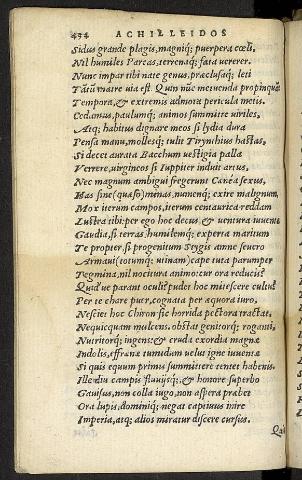 434 ACHILLEIDOS
Sidus grande plagis, magniq; puerpera cœli,
Nil humiles Parcas, terrenaq; fata vererer.
Nunc impar tibi nate genus, præclusaq; leti
Tātū matre uia est. Quin nūc metuenda propinquā
Tempora, & extremis admota pericula metis.
Cedamus, paulumq; animos summitte uiriles,
Atq; habitus dignare meos si lydia dura
Pensa manu, mollesq; tulit Tirynthius hastas,
Si decet aurata Bacchum uestigia palla
Verrere, uirgineos si Iuppiter induit artus,
Nec magnum ambigui fregerunt Cænea sexus,
Has sine (quæso) minas, nubemq; exire malignam,
Mox iterum campos, iterum centaurica reddam
Lustra tibi: per ego hoc decus & uentura iuuentæ
Gaudia, si terras, humilemq; experta maritum
Te propter, si progenitum Stygis amne seuero
Armaui (totumq; utinam) cape tuta parumper
Tegmina, nil nocitura animo: cur ora reducis?
Quid'ue parant oculi? pudet hoc mitescere cultu?
Per te chare puer, cognata per æquora iuro,
Nesciet hoc Chiron. sic horrida pectora tractat,
Nequicquam mulcens. obstat genitorq; roganti,
Nutritorq; ingens: & cruda exordia magnæ
Indolis, effræna tumidum uelut igne iuuentæ
Si quis equum primis summittere tentet habenis.
Ille diu campis fluuijsq; & honore superbo
Gauisus, non colla iugo, non aspera præbet
Ora lupis, dominiq; negat captiuus inire
Imperia, atq; alios miratur discere cursus.